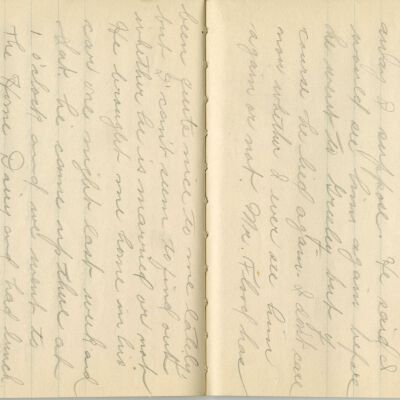 away I suppose. He said I
would see him again before
he went to Greeley but of
course he lied again. I don't care
now whether I ever see him
again or not. Mr. Flood has
been quite nice to me lately,
but I can't seem to find out
whether he is married or not.
He brought me home in his
car one night last week and
Sat. he came up there at
1 o'clock and we went to
The Home Dairy and had lunch